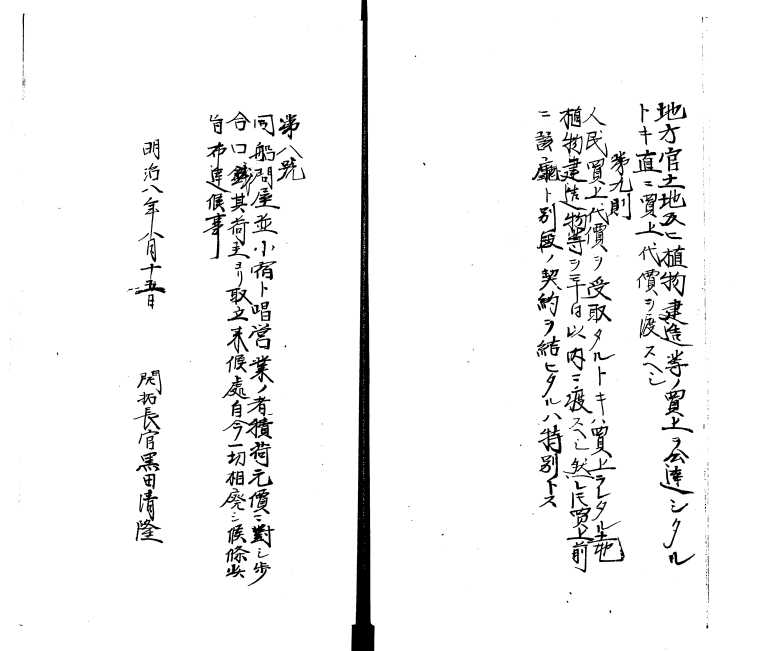 地方官土地及ヒ植物建造等ノ買上ヲ公達シタル
トキ直ニ買上代價ヲ渡スヘシ
第九則
人民買上代價ヲ受取タルトキハ買上ラレタル土地
植物建造物等ヲ三十日以内ニ渡スヘシ然レ𪜈買上前
ニ該廳ト別段ノ契約ヲ結ヒタルハ特別トス
第八號
同船問屋並小宿ト唱営業ノ者積荷元價ニ對シ歩
合口錢其荷主ヨリ取立来候處自今一切相廃シ候條此
旨布達候事
明治八年八月十五日
開拓長官黒田清隆